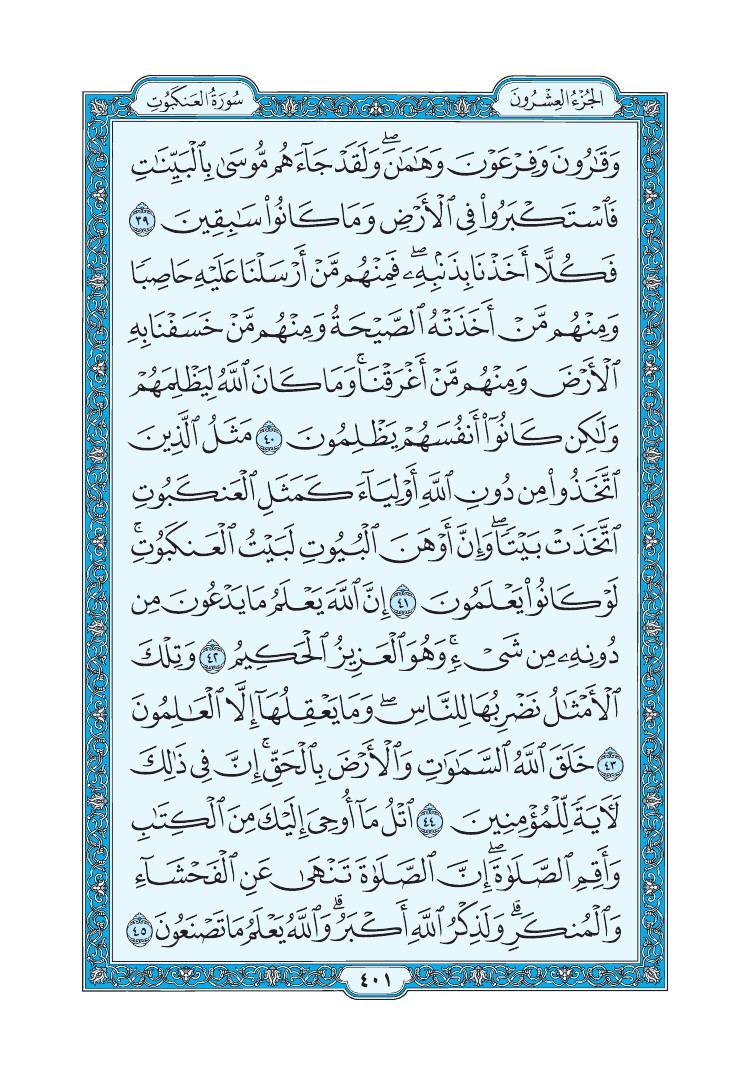 الجُزْءُ العِشْرُونَ
سُورَةُ العَنكَبُوتِ
وَقَٰرُونَ وَفِرْعَوْنَ وَهَٰمَٰنَۖ وَلَقَدْ جَآءَهُم مُّوسَىٰ بِالْبَيِّنَٰتِ
فَاسْتَكْبَرُوا۟ فِى الْأَرْضِ وَمَا كَانُوا۟ سَٰبِقِينَ ٣٩
فَكُلًّا أَخَذْنَا بِذَنۢبِهِۦۖ فَمِنْهُم مَّنْ أَرْسَلْنَا عَلَيْهِ حَاصِبًا
وَمِنْهُم مَّنْ أَخَذَتْهُ الصَّيْحَةُ وَمِنْهُم مَّنْ خَسَفْنَا بِهِ
الْأَرْضَ وَمِنْهُم مَّنْ أَغْرَقْنَاۚ وَمَا كَانَ اللَّهُ لِيَظْلِمَهُمْ
وَلَٰكِن كَانُوٓا۟ أَنفُسَهُمْ يَظْلِمُونَ ٤٠ مَثَلُ الَّذِينَ
اتَّخَذُوا۟ مِن دُونِ اللَّهِ أَوْلِيَآءَ كَمَثَلِ الْعَنكَبُوتِ
اتَّخَذَتْ بَيْتًاۖ وَإِنَّ أَوْهَنَ الْبُيُوتِ لَبَيْتُ الْعَنكَبُوتِۚ
لَوْ كَانُوا۟ يَعْلَمُونَ ٤١ إِنَّ اللَّهَ يَعْلَمُ مَا يَدْعُونَ مِن
دُونِهِۦ مِن شَىْءٍۚ وَهُوَ الْعَزِيزُ الْحَكِيمُ ٤٢ وَتِلْكَ
الْأَمْثَٰلُ نَضْرِبُهَا لِلنَّاسِۖ وَمَا يَعْقِلُهَآ إِلَّا الْعَٰلِمُونَ
٤٣ خَلَقَ اللَّهُ السَّمَٰوَٰتِ وَالْأَرْضَ بِالْحَقِّۚ إِنَّ فِى ذَٰلِكَ
لَءَايَةً لِّلْمُؤْمِنِينَ ٤٤ اتْلُ مَآ أُوحِىَ إِلَيْكَ مِنَ الْكِتَٰبِ
وَأَقِمِ الصَّلَوٰةَۖ إِنَّ الصَّلَوٰةَ تَنْهَىٰ عَنِ الْفَحْشَآءِ
وَالْمُنكَرِۗ وَلَذِكْرُ اللَّهِ أَكْبَرُۗ وَاللَّهُ يَعْلَمُ مَا تَصْنَعُونَ ٤٥
٤٠١